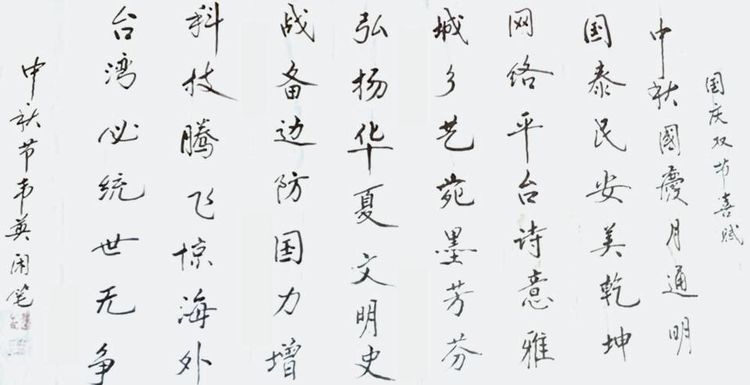 国庆双节喜赋
中秋國慶月通明
国泰民安美乾坤
网络平台诗意雅
城乡艺苑墨芳芬
弘扬华夏文明史
战备边防国力增
科技腾飞惊海外
台湾必统世无争
中秋节韦英闲笔